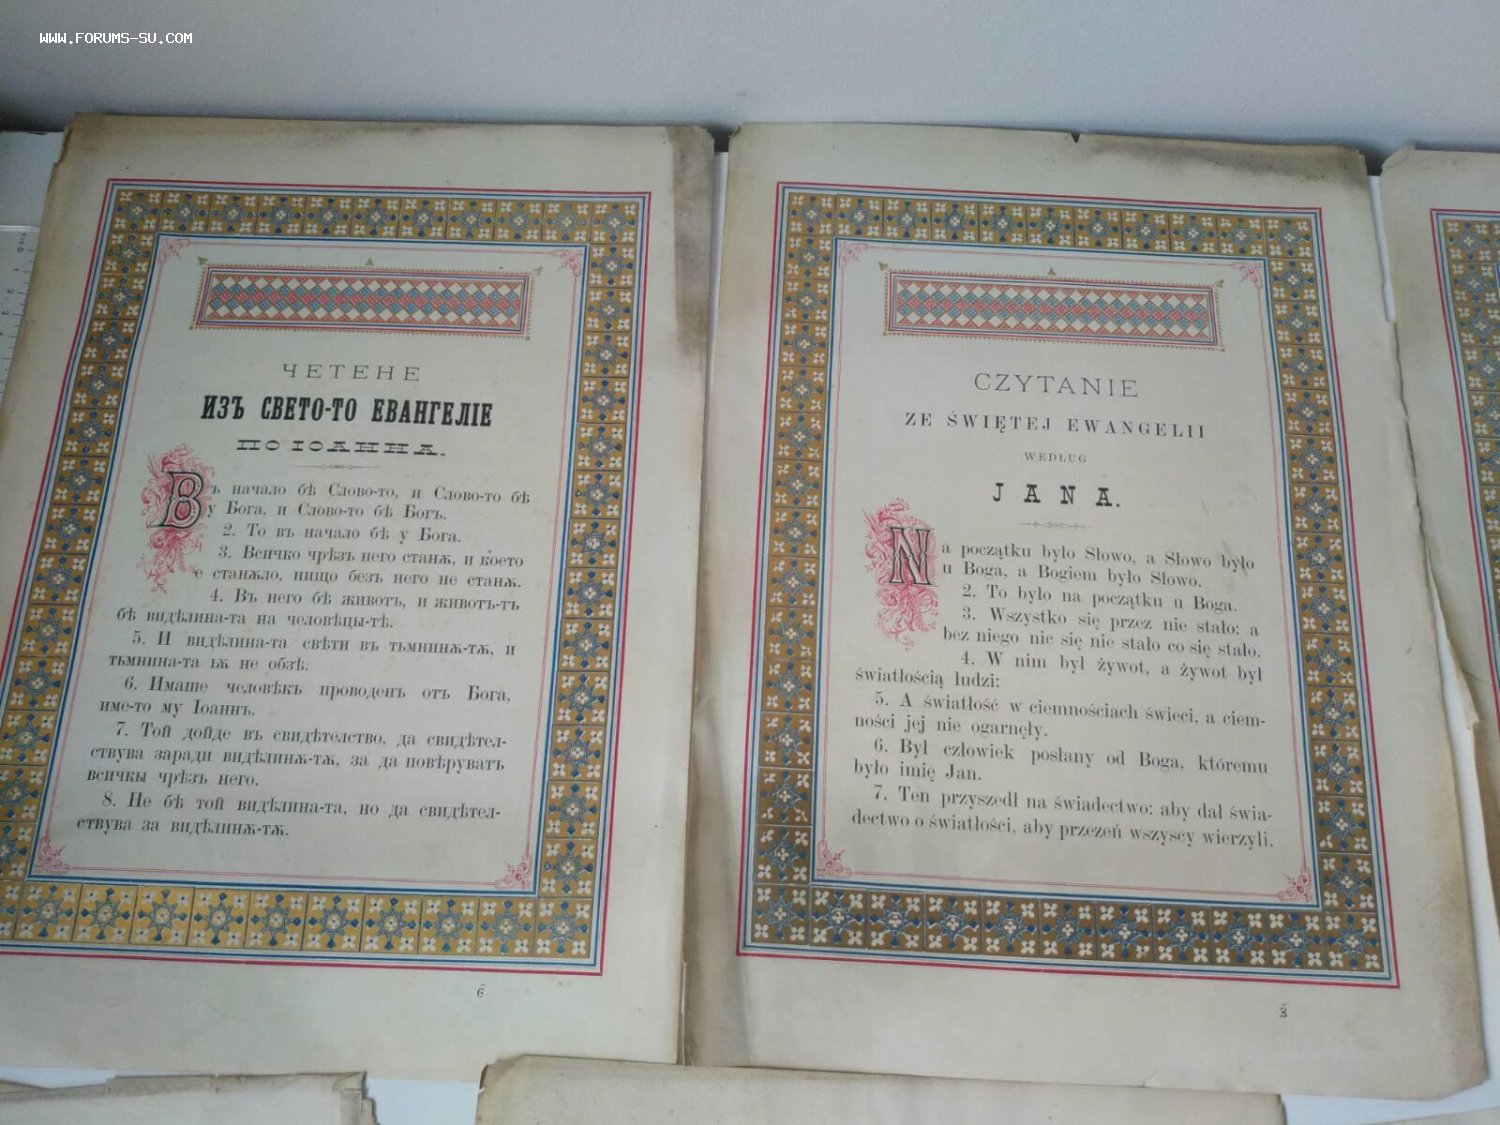 WWW.FORUMS-SU.COM
ЧЕТЕНЕ
ИЗЪ СВЕТО-ТО ЕВАНГЕЛІЕ
ПО ІОАННА.
Въ начало бѣ Слово-то, и Слово-то бѣ
у Бога, и Слово-то бѣ Богъ.
2. То въ начало бѣ у Бога.
3. Всичко чрѣзъ него станѫ, и което
е станѫло, нищо безъ него не станѫ.
4. Въ него бѣ животъ, и животъ-тъ
бѣ видѣлина-та на человѣцы-тѣ.
5. И видѣлина-та свѣти въ тьмнинѫ-тѫ, и
тьмнина-та ѭ не обзѣ.
6. Имаше человѣкъ проводенъ отъ Бога,
име-то му Іоаннъ.
7. Той дойде въ свидѣтелство, да свидѣтел-
ствува заради видѣлинѫ-тѫ, за да повѣруватъ
всичкы чрѣзъ него.
8. Не бѣ той видѣлина-та, но да свидѣтел-
ствува за видѣлинѫ-тѫ.
CZYTANIE
ZE ŚWIĘTEJ EWANGELII
WEDŁUG
JANA.
Na początku było Słowo, a Słowo było
u Boga, a Bogiem było Słowo.
2. To było na początku u Boga.
3. Wszystko się przez nie stało: a
bez niego nic się nie stało co się stało.
4. W nim był żywot, a żywot był
światłością ludzi:
5. A światłość w ciemnościach świeci, a ciem-
ności jej nie ogarnęły.
6. Był człowiek posłany od Boga, któremu
było imię Jan.
7. Ten przyszedł na świadectwo: aby dał świa-
dectwo o światłości, aby przezeń wszyscy wierzyli.